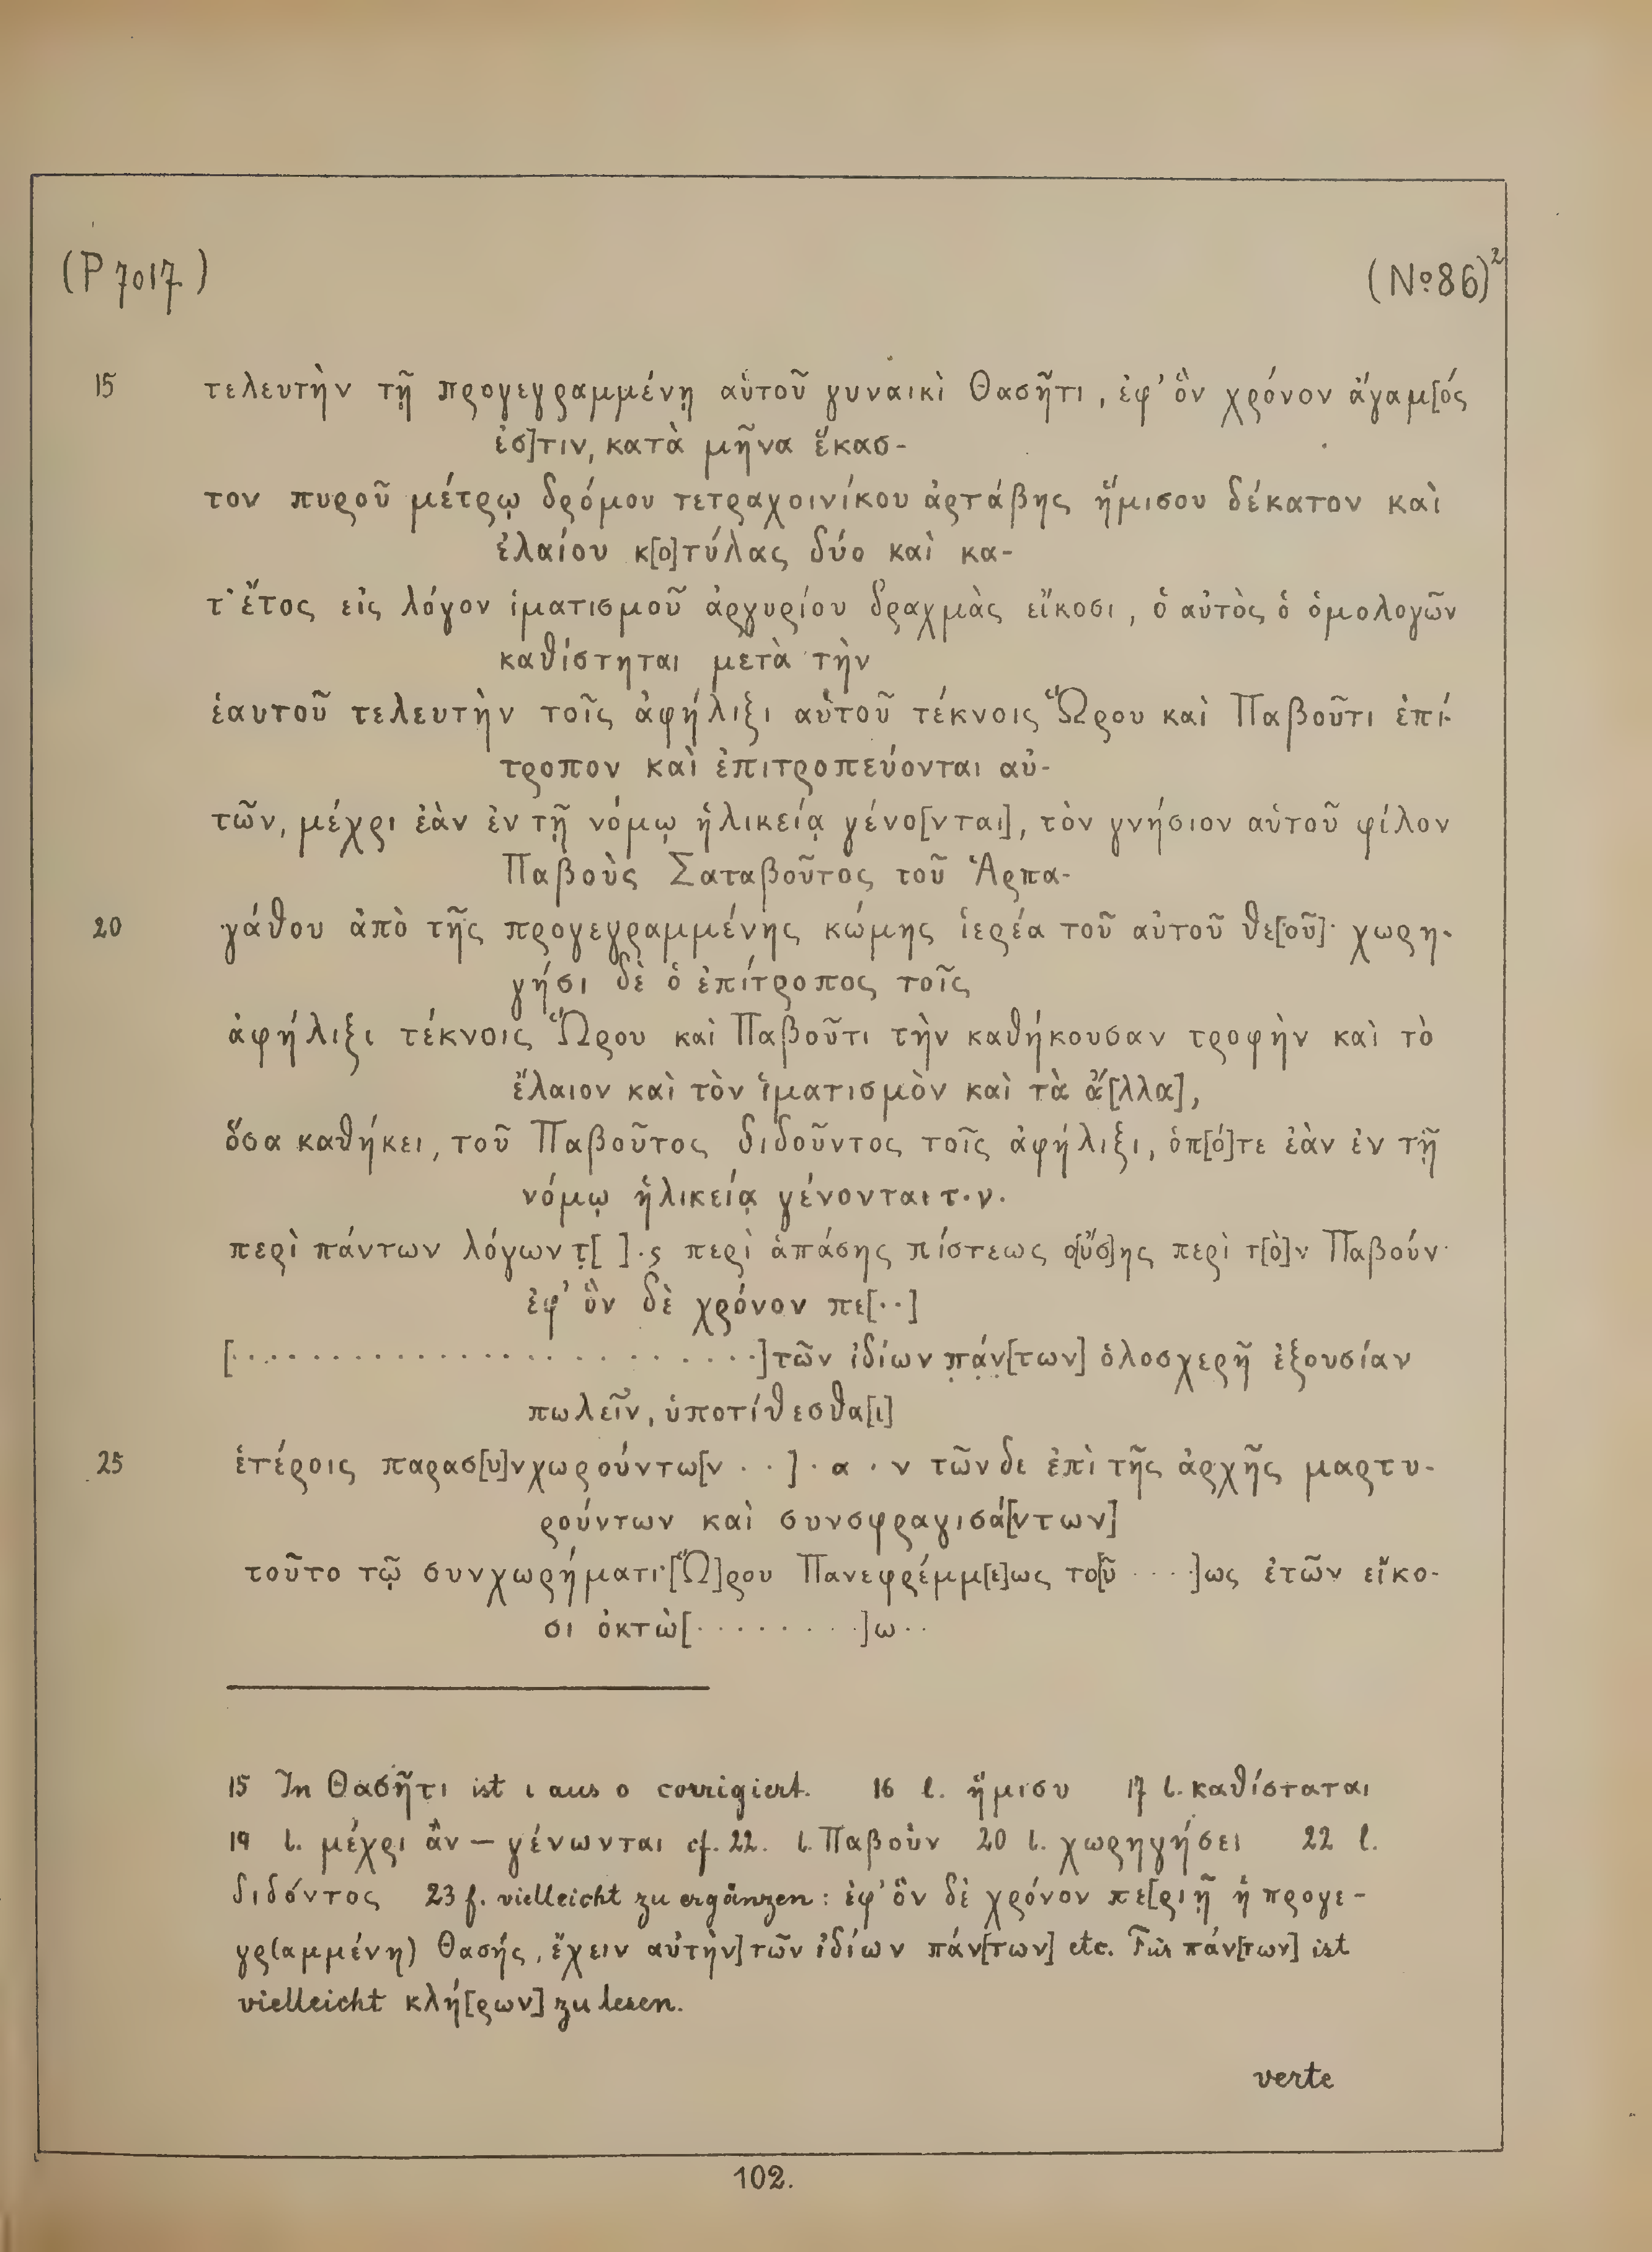 (P 7017) (No 86)²
15 τελευτὴν τῇ προγεγραμμένῃ αὐτοῦ γυναικὶ Θασῆτι, ἐφ’ ὃν χρόνον ἄγαμ[ός
ἐσ]τιν, κατὰ μῆνα ἕκασ-
τον πυροῦ μέτρῳ δρόμου τετραχοινίκου ἀρτάβης ἥμισου δέκατον καὶ
ἐλαίου κ[ο]τύλας δύο καὶ κα-
τ’ ἔτος εἰς λόγον ἱματισμοῦ ἀργυρίου δραχμὰς εἴκοσι, ὁ αὐτὸς ὁ ὁμολογῶν
καθίστηται μετὰ τὴν
ἑαυτοῦ τελευτὴν τοῖς ἀφήλιξι αὐτοῦ τέκνοις Ὥρου καὶ Παβοῦτι ἐπί-
τροπον καὶ ἐπιτροπεύονται αὐ-
τῶν, μέχρι ἐὰν ἐν τῇ νόμῳ ἡλικείᾳ γένο[νται], τὸν γνήσιον αὐτοῦ φίλον
Παβοὺς Σαταβοῦτος τοῦ Ἁρπα-
20 γάθου ἀπὸ τῆς προγεγραμμένης κώμης ἱερέα τοῦ αὐτοῦ θε[οῦ]· χωρη-
γήσι δὲ ὁ ἐπίτροπος τοῖς
ἀφήλιξι τέκνοις Ὥρου καὶ Παβοῦτι τὴν καθήκουσαν τροφὴν καὶ τὸ
ἔλαιον καὶ τὸν ἱματισμὸν καὶ τὰ ἄ[λλα],
ὅσα καθήκει, τοῦ Παβοῦτος διδοῦντος τοῖς ἀφήλιξι, ὁπ[ό]τε ἐὰν ἐν τῇ
νόμῳ ἡλικείᾳ γένονται τ·ν·
περὶ πάντων λόγων τ̣[ ]·ς περὶ ἁπάσης πίστεως ο[ὔσ]ης περὶ τ[ὸ]ν Παβούν·
ἐφ’ ὃν δὲ χρόνον πε[··]
[··························]τῶν ἰδίων π̣ά̣ν̣[των] ὁλοσχερῆ ἐξουσίαν
πωλεῖν, ὑποτίθεσθα[ι]
25 ἑτέροις παρασ[υ]νχωρούντω[ν ··]·α·ν τῶνδε ἐπὶ τῆς ἀρχῆς μαρτυ-
ρούντων καὶ συνσφραγισά[ντων]
τοῦτο τῷ συνχωρήματι·[Ὥ]ρου Πανεφρέμμ[ε]ως το[ῦ ····]ως ἐτῶν εἴκο-
σι ὀκτὼ[········]ω··
15 In Θασῆτι ist ι aus ο corrigiert. 16 l. ἥμισυ 17 l. καθίσταται
19 l. μέχρι ἂν — γένωνται cf. 22. l. Παβοῦν 20 l. χωρηγήσει 22 l.
διδόντος 23 f. vielleicht zu ergänzen: ἐφ’ ὃν δὲ χρόνον πε[ριῇ ἡ προγε-
γρ(αμμένη) Θασής, ἔχειν αὐτὴν] τῶν ἰδίων πάν[των] etc. Für πάν[των] ist
vielleicht κλή[ρων] zu lesen.
verte
102.